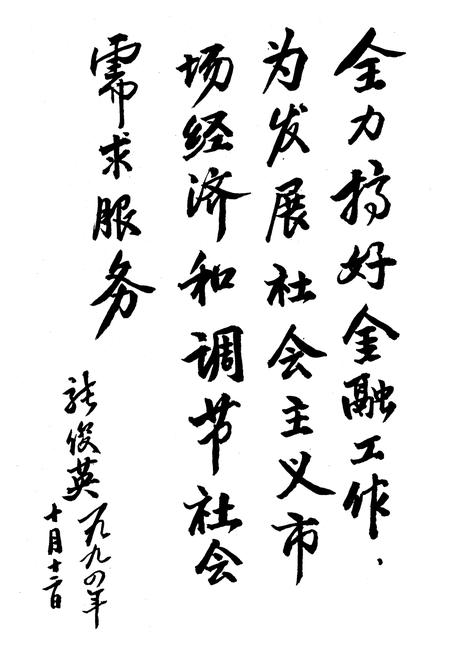 全力搞好金融工作、
为发展社会主义市
场经济和调节社会
需求服务
俊英
一九九四年
十月十二日